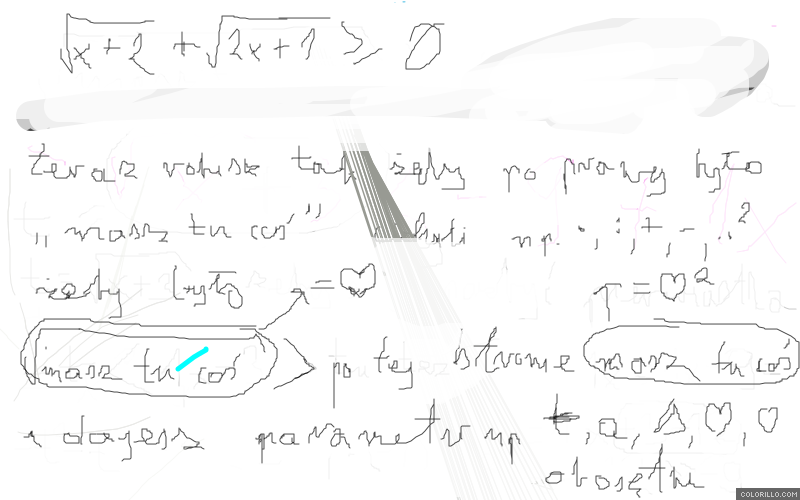 √x+2 + √2x+1 > 0
teraz robisz tak żeby po prawej było
"masz tu coś" np. ·, :, +, -, ..²
żeby było ↗ = ♡ ↑ = ♡²
masz tu coś > po tej stronie masz tu coś
i dajesz parametr np t, a, Δ, ♡, ♡
obojętne
COLORILLO.COM